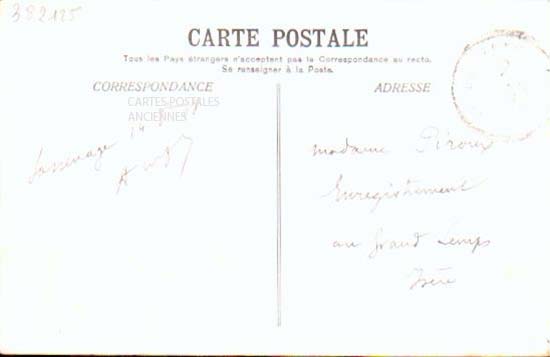 382125
CARTE POSTALE
Tous les Pays étrangers n'acceptent pas la Correspondance au recto.
Se renseigner à la Poste.
CORRESPONDANCE
ADRESSE
CARTES POSTALES
ANCIENNES
Sassenage 14
madame Piroux
Enregistrement
au Grand Lemps
Isère